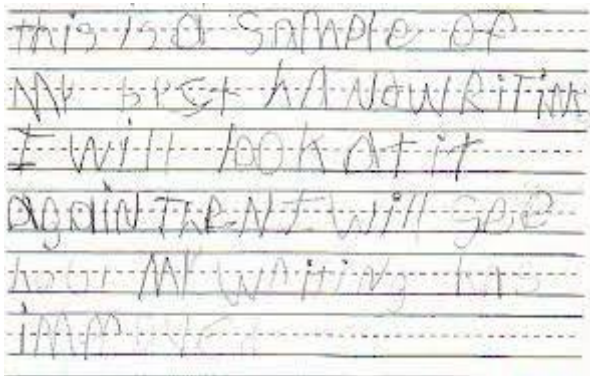 this is a SAMPle oF
My best hANdWRiTiNg
I will look at it
agaiN TheN I will see
how My WRitiNg has